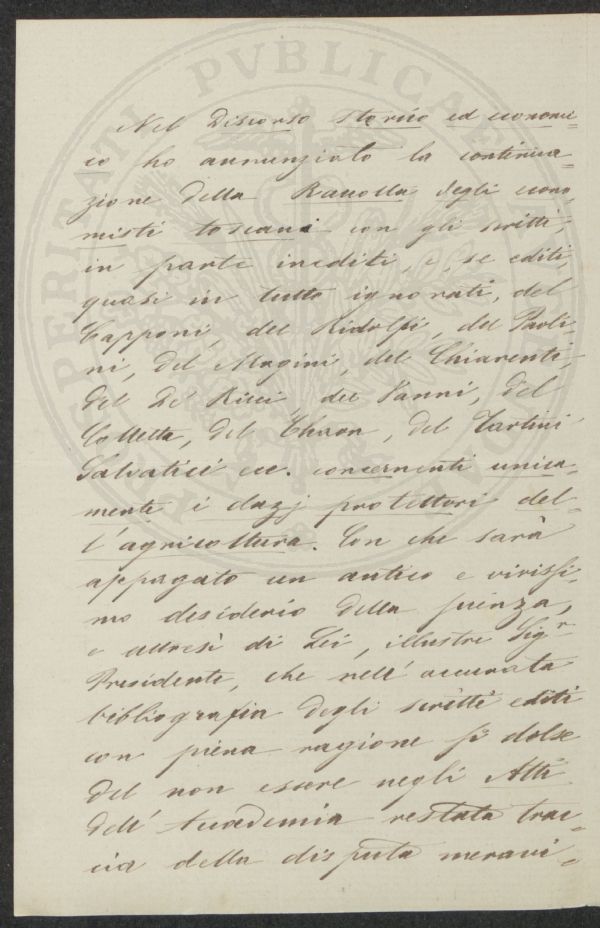 PROSPERITATI PVBLICAE AVGENDAE
Nel Discorso storico ed economi=
co ho annunziato la continua=
zione della Raccolta degli econo=
misti toscani con gli scritti,
in parte inediti, e, se editi,
quasi in tutto ignorati, del
Capponi, del Ridolfi, del Paoli=
ni, del Magini, del Chiarenti,
del De' Ricci, del Vanni, del
Colletta, del Thaon, del Tartini
Salvatici ecc. concernenti unica=
mente i dazj protettori del=
l'agricoltura. Con che sarà
appagato un antico e vivissi=
mo desiderio della scienza,
e altresì di Lei, illustre Sigr
Presidente, che nell'accurata
bibliografia degli scritti editi
con piena ragione si dolse
del non essere negli Atti
dell'Accademia restata trac=
cia della disputa meravi=